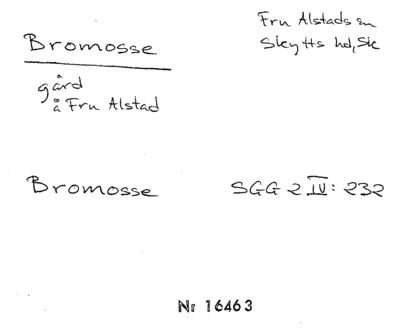 Bromosse
Fru Alstads sn
Skytts hd, Sk
gård
å Fru Alstad
Bromosse
SGG 2 IV: 232
Nr 16463